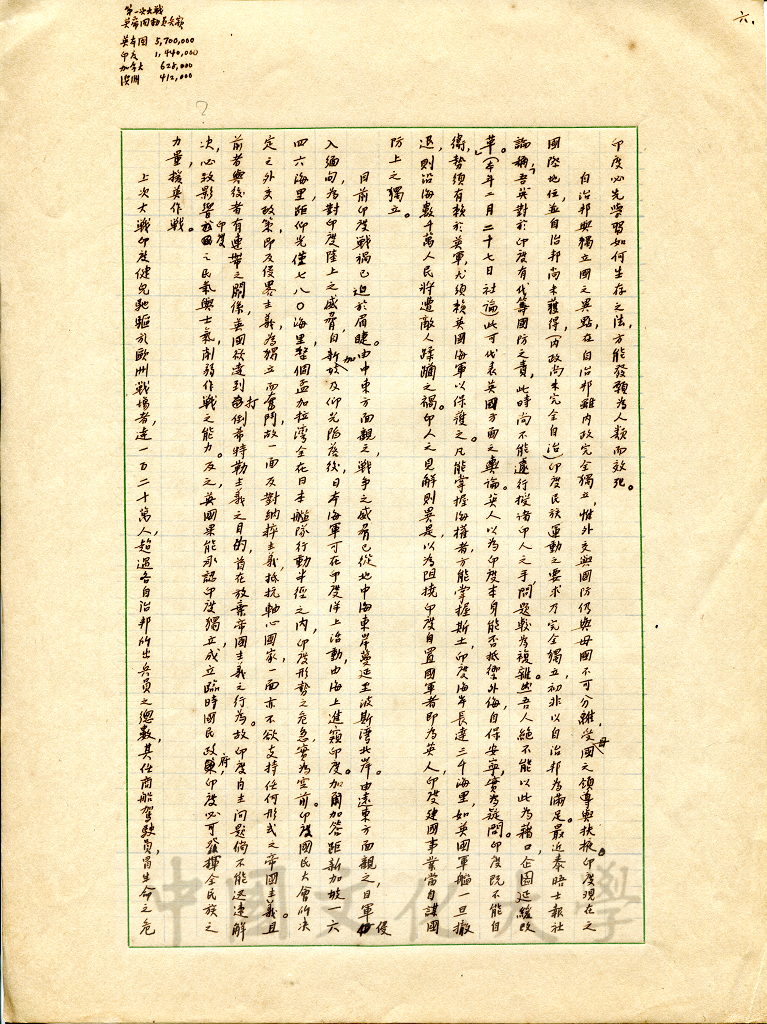 六、
第一次大戰
英帝国動員兵額
英本国 5,700,000
印度 1,440,000
加拿大 628,000
澳洲 412,000
?
印度必先學習如何生存之法,方能發願為人類而效死。
自治邦與獨立國之異點,在自治邦雖內政完全獨立,惟外交與國防仍與母國不可分離,受母國之領導與扶掖。印度現在之
國際地位,並自治邦尚未獲得(內政尚未完全自治)印度民族運動之要求乃完全獨立,初非以自治邦為滿足。最近泰晤士報社
論稱,「吾英對於印度有代籌國防之責,此時尚不能遽行授諸印人之手,問題較為複雜,然吾人絕不能以此為藉口,企圖延緩改
革。」(本年二月二十七日社論)此可代表英國方面之輿論。英人以為印度本身能否抵禦外侮自保安寧,實為疑問。印度既不能自
衛,勢須有賴於英軍,尤須賴英國海軍以保護之。凡能掌握海權者,方能掌握斯土,印度海岸長達三千海里,如英國軍艦一旦撤
退,則沿海數千萬人民將遭敵人蹂躪之禍。印人之見解則異是,以為阻撓印度自置國軍者即為英人,印度建國事業當自謀國
防上之獨立。
目前印度戰禍已迫於眉睫。由中東方面觀之,戰爭之威脅已從地中海東岸蔓延至波斯灣北岸。由遠東方面觀之,日軍侵
入緬甸,為對印度陸上之威脅,自新加坡及仰光陷落後,日本海軍可在印度洋上活動,由海上進窺印度。加爾加答距新加坡一六
四六海里,距仰光僅七八〇海里,整個孟加拉灣全在日本艦隊行動半徑之內,印度形勢之危急,實為空前。印度國民大會所決
定之外交政策,即反侵略主義,為獨立而奮鬥,故一面反對納粹主義,抵抗軸心國家,一面亦不欲支持任何形式之帝國主義。且
前者與後者有連帶之關係,英國欲達到打倒希特勒主義之目的,首在放棄帝國主義之行為。故印度自主問題倘不能迅速解
決,必致影響印度之民氣與士氣,削弱作戰之能力。反之,英國果能承認印度獨立,成立臨時國民政府,印度必可發揮全民族之
力量,援英作戰。
上次大戰印度健兒馳驅於歐洲戰場者,達一百二十萬人,超過各自治邦所出兵員之總數,其任商船駕駛員,冒生命之危
中國文化大學